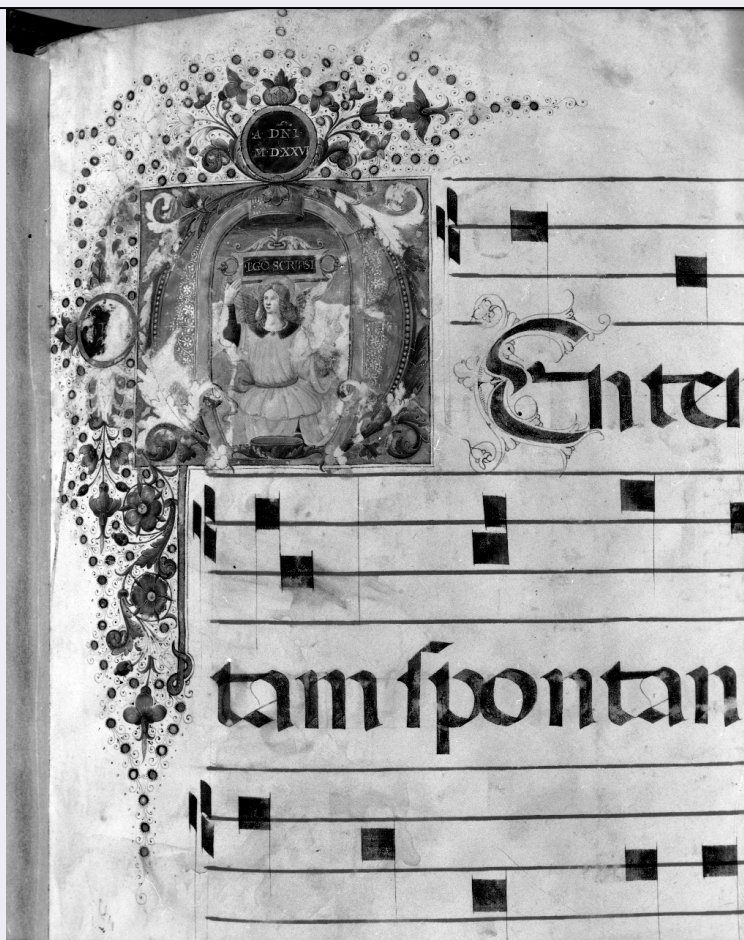 A DNI
M·DXXVI
EGO·SCRIPSI
M Ente
tam ſpontan